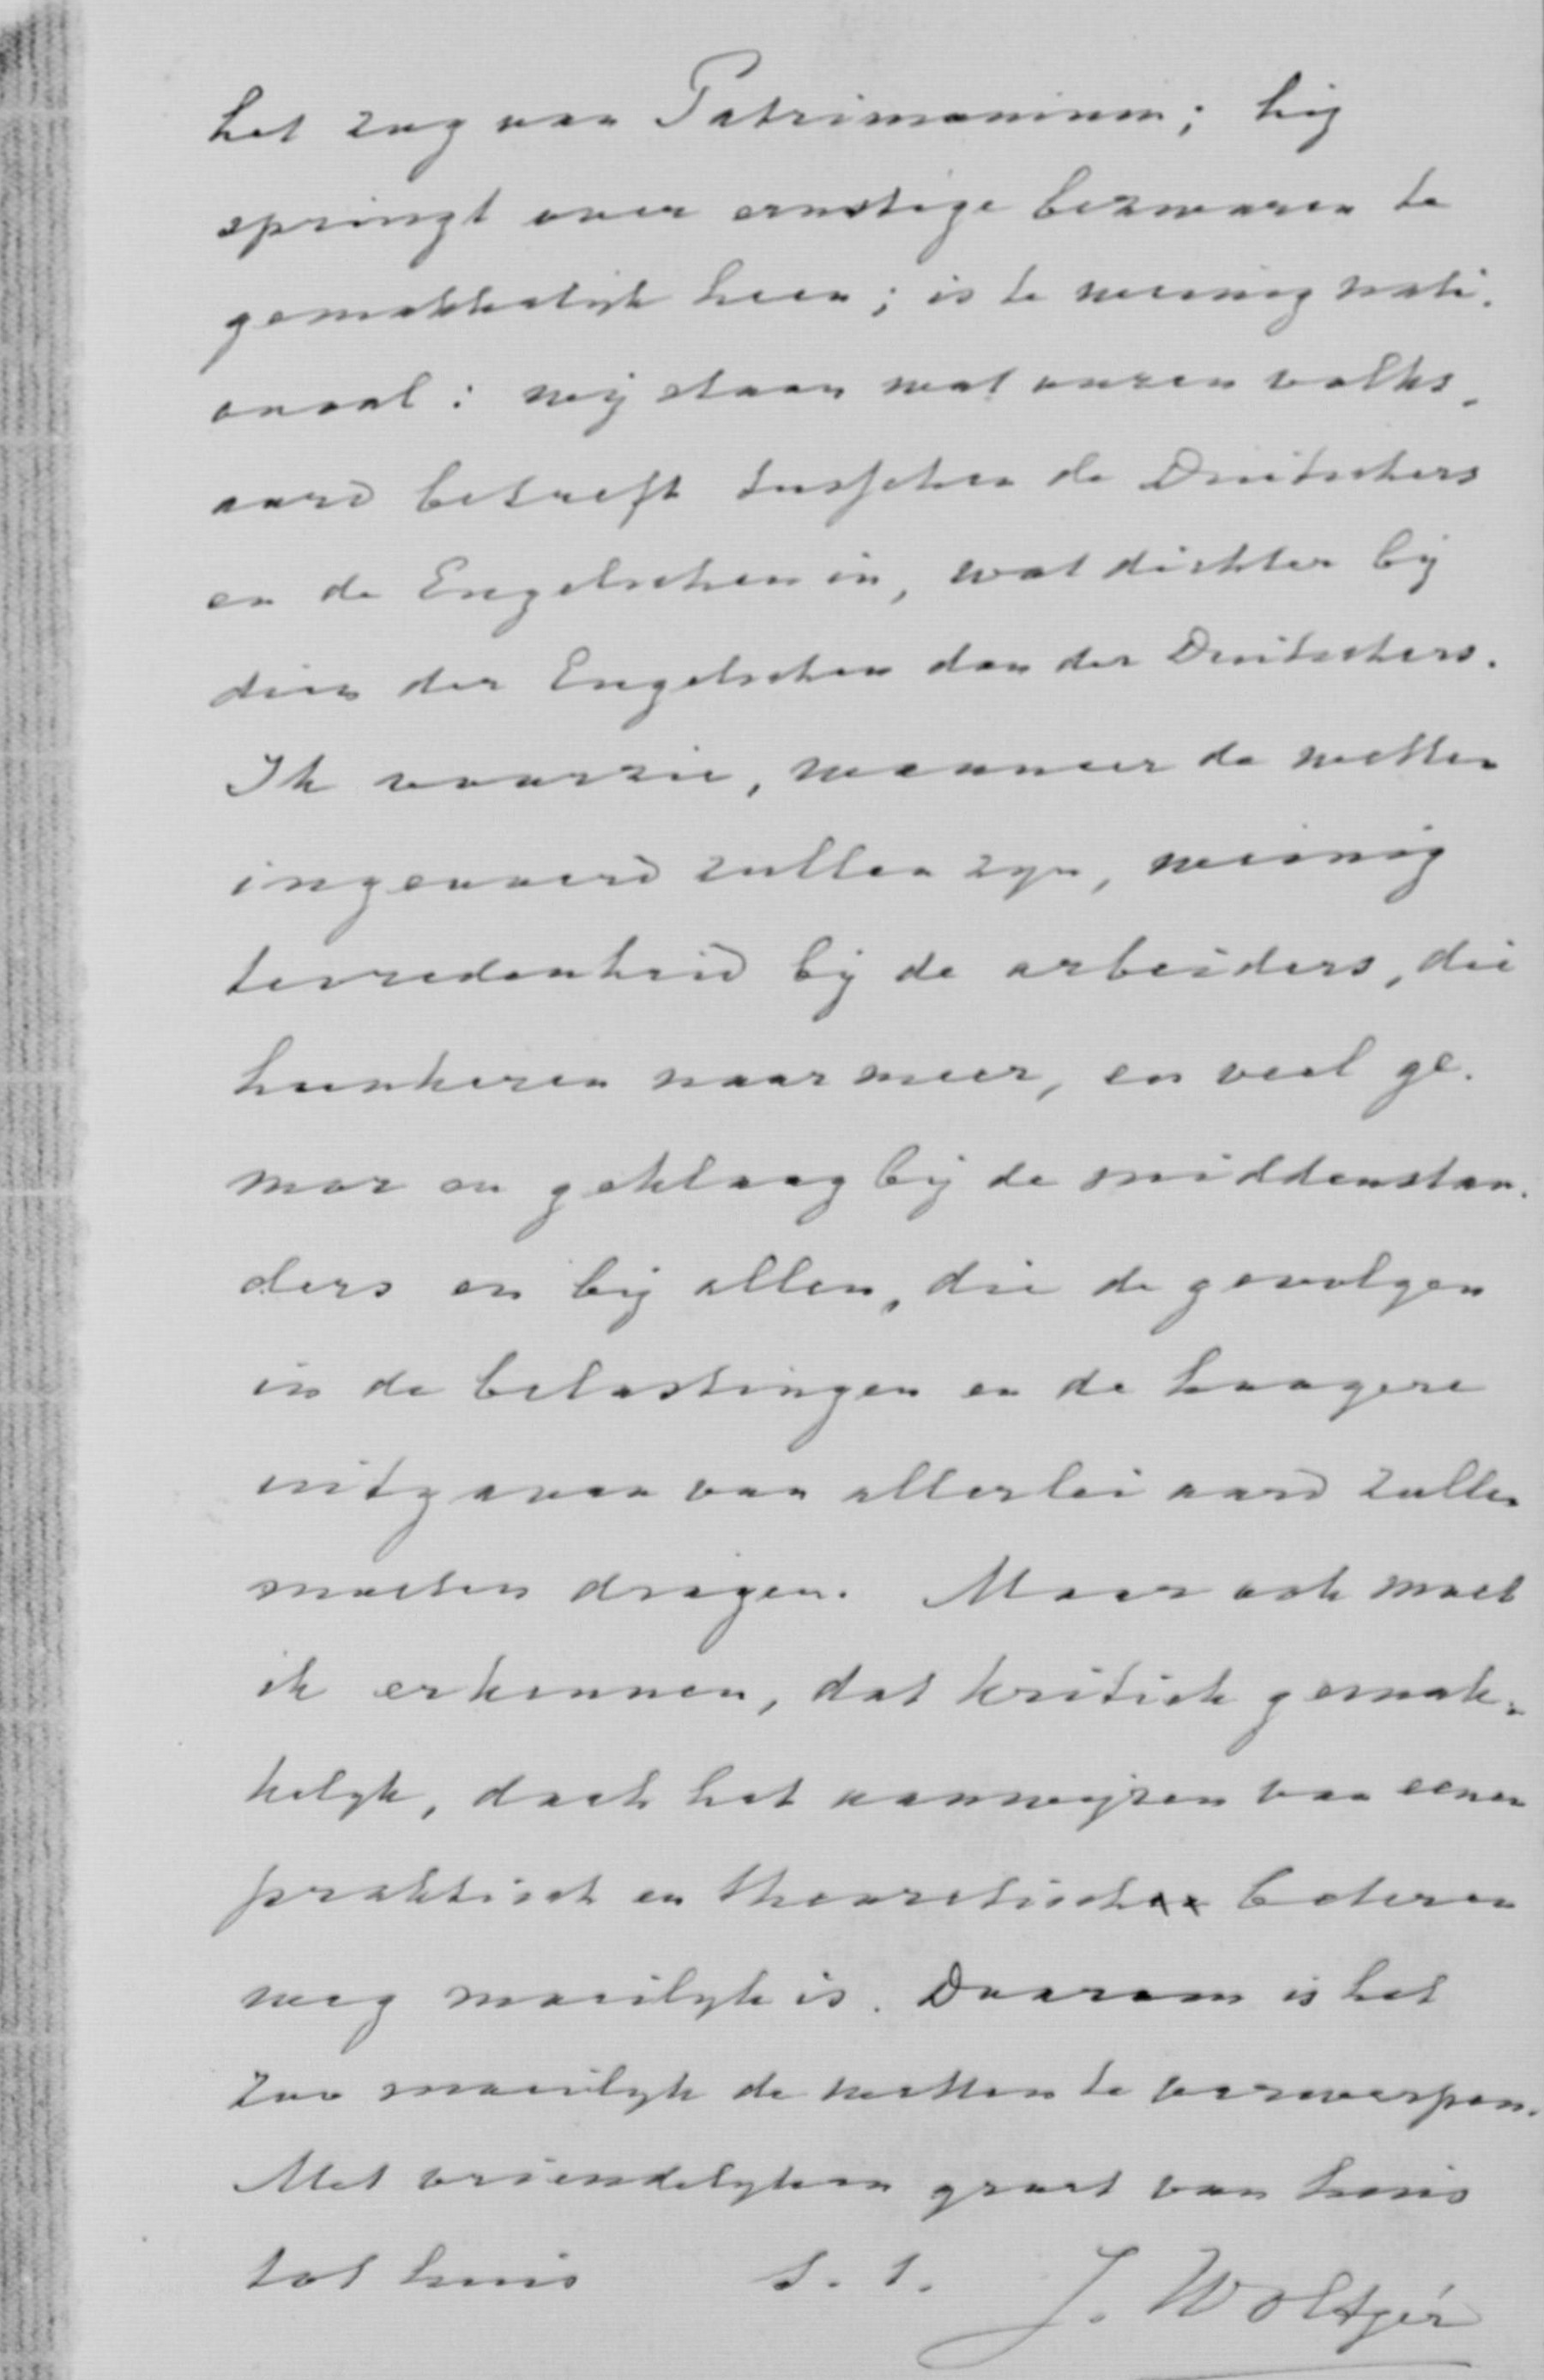 het zog van Patrimonium; hij
springt over ernstige bezwaren te
gemakkelijk heen; is te weinig nati-
onaal: wij staan wat onzen volks-
aard betreft tusschen de Duitschers
en de Engelschen in, wat dichter bij
dien der Engelschen dan der Duitschers.
Ik voorzie, wanneer de wetten
ingevoerd zullen zyn, weinig
tevredenheid bij de arbeiders, die
hunkeren naar meer, en veel ge-
mor en geklaag bij de middenstan-
ders en bij allen, die de gevolgen
in de belastingen en de hoogere
uitgaven van allerlei aard zullen
moeten dragen. Maar ook moet
ik erkennen, dat kritiek gemak-
kelyk, doch het aanwijzen van eenen
praktisch en theoretisch beteren
weg moeilyk is. Daarom is het
zoo moeilyk de wetten te verwerpen.
Met vriendelyken groet van huis
tot huis t. t. J. Woltjer